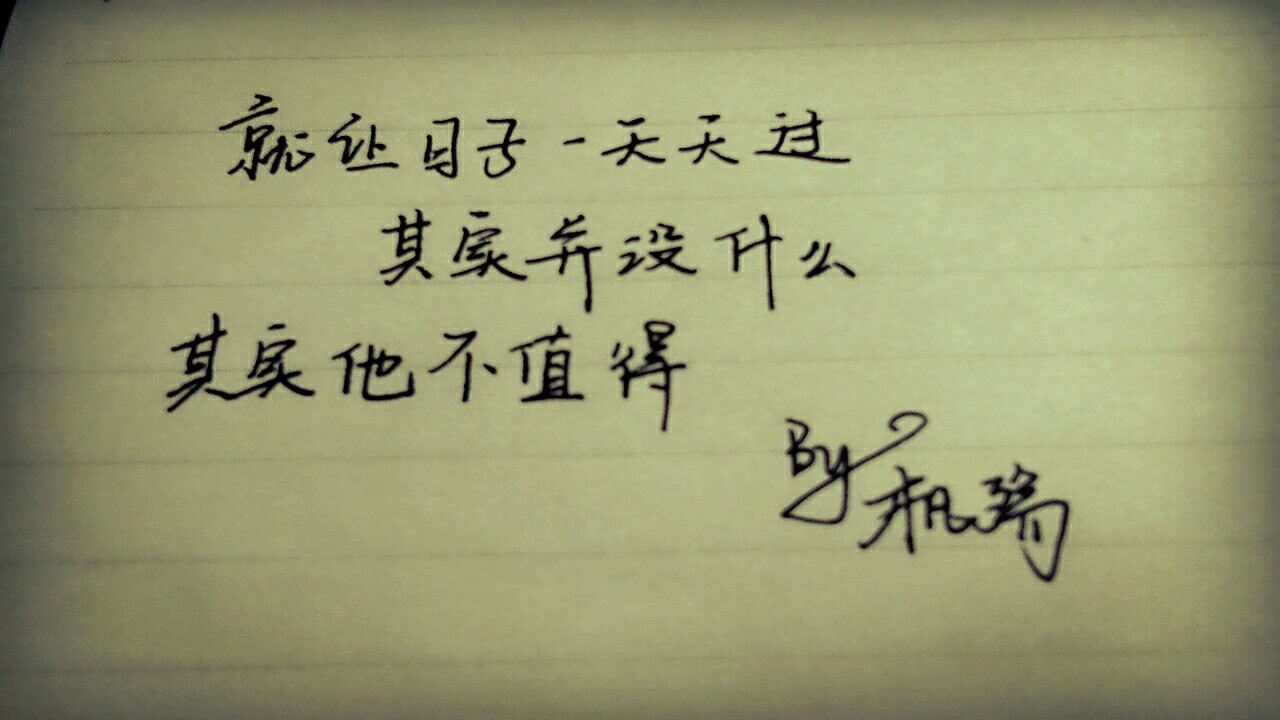 就让日子一天天过
其实并没什么
其实他不值得
By